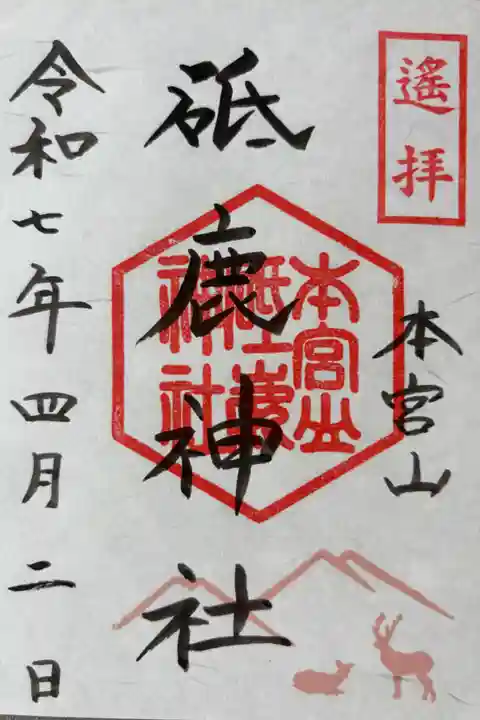 遙拝
本宮山
砥鹿神社
本宮山
砥上嶽
神社
令和七年四月二日